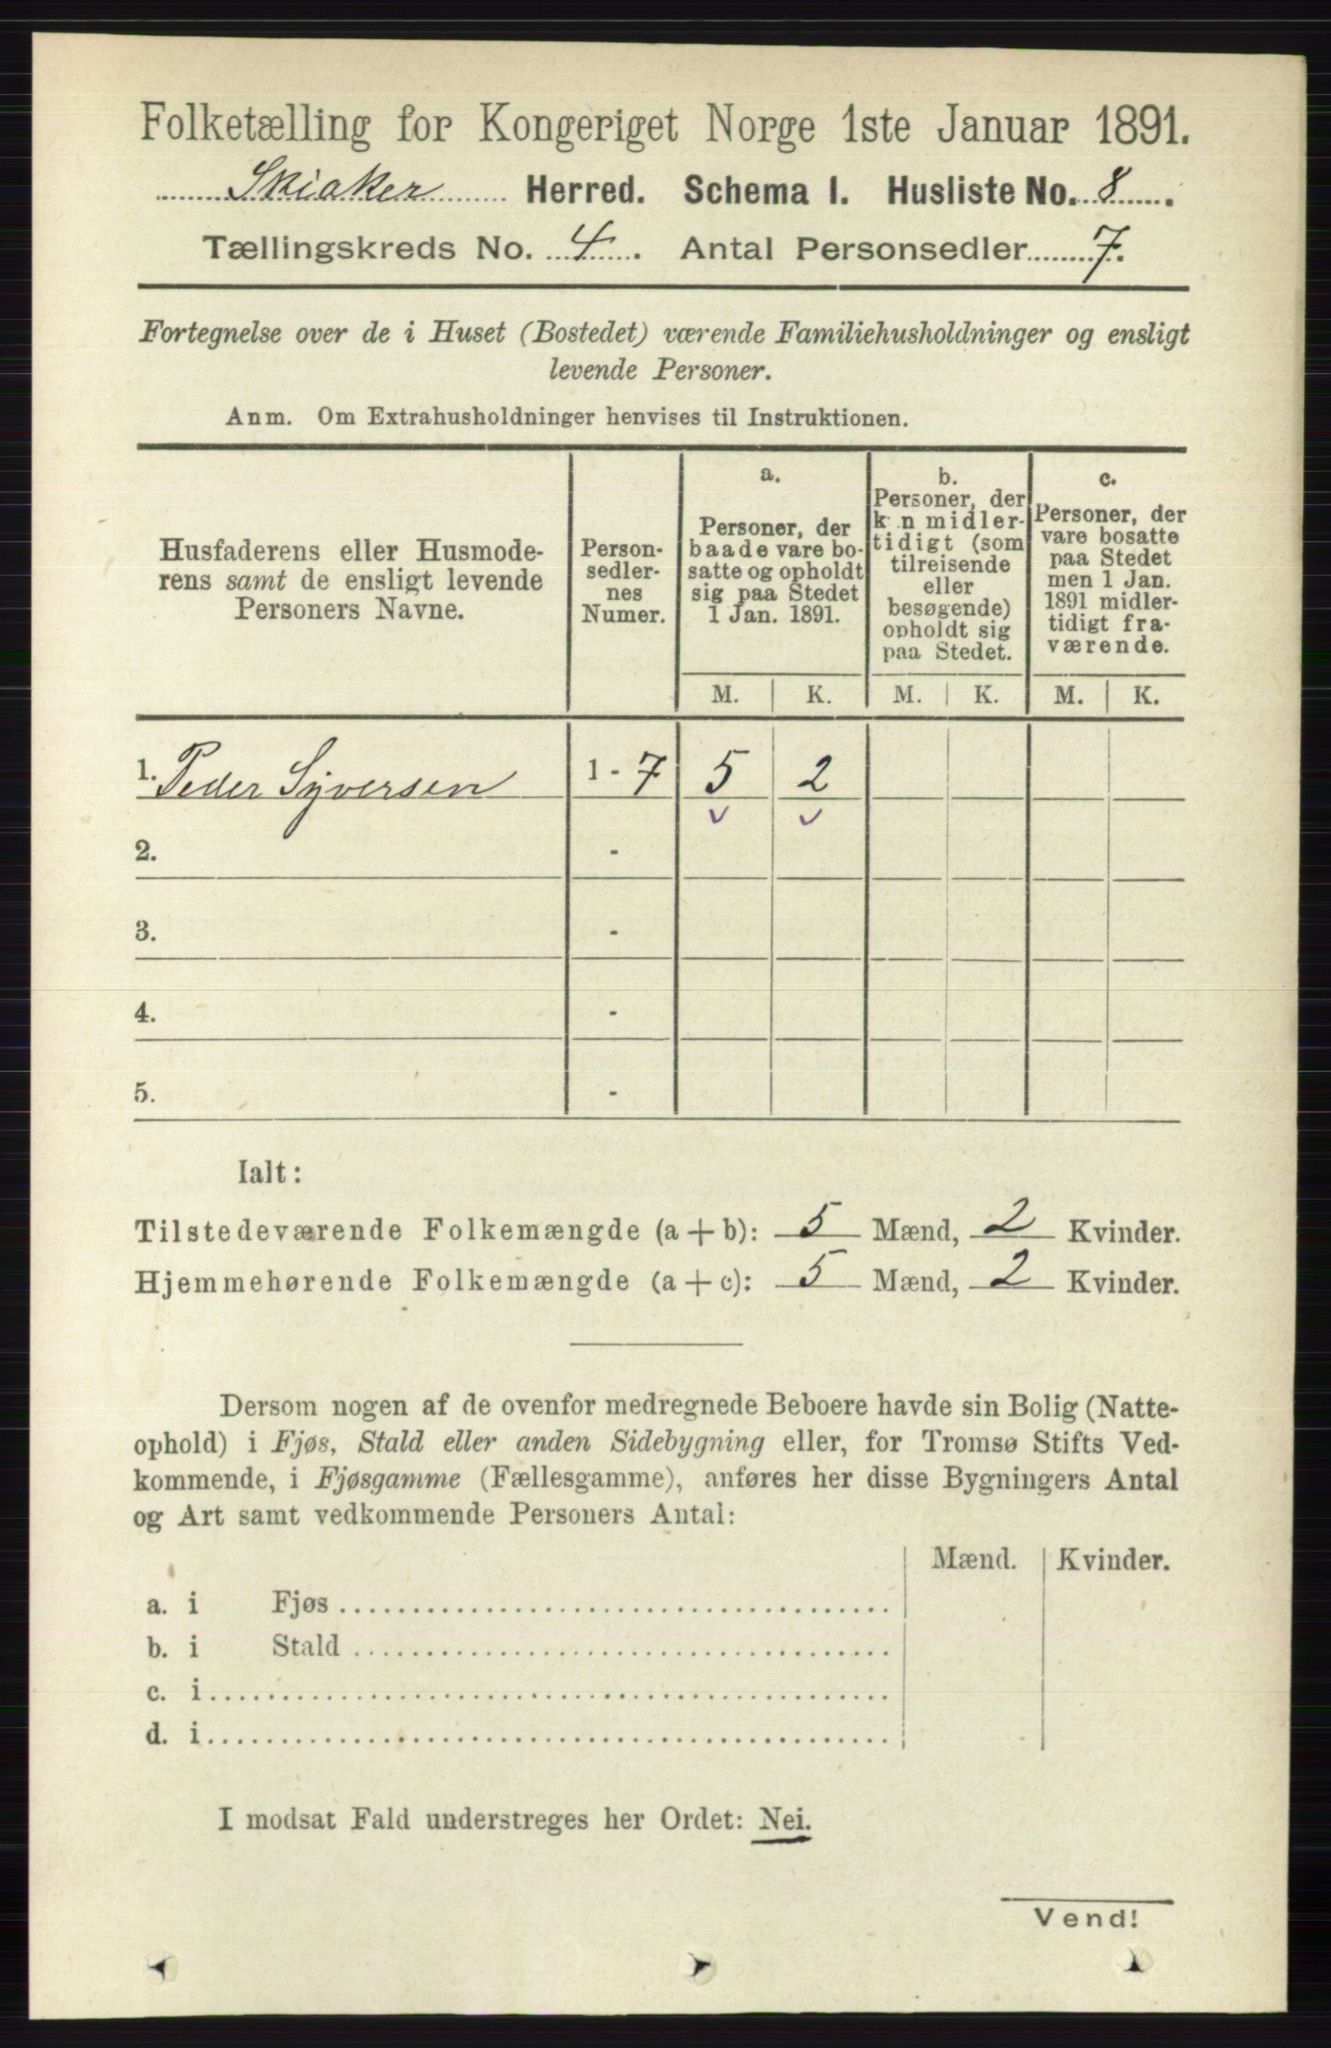 Folketælling for Kongeriget Norge 1ste Januar 1891.
Skiaker Herred. Schema 1. Husliste No. 8.
Tællingskreds No. 4. Antal Personsedler 7.
Fortegnelse over de i Huset (Bostedet) værende Familiehusholdninger og ensligt
levende Personer.
Anm. Om Extrahusholdninger henvises til Instruktionen.
Husfaderens eller Husmode-
rens samt de ensligt levende
Personers Navne.
Person-
sedler-
nes
Numer.
a.
Personer, der
baade vare bo-
satte og opholdt
sig paa Stedet
1 Jan. 1891.
b.
Personer, der
k n midler-
tidigt (som
tilreisende
eller
besøgende)
opholdt sig
paa Stedet.
c.
Personer, der
vare bosatte
paa Stedet
men 1 Jan.
1891 midler-
tidigt fra-
værende.
M. K. M. K. M. K.
1. Peder Syversen 1 - 7 5 2
2. -
3. -
4. -
5. -
Ialt:
Tilstedeværende Folkemængde (a + b): 5 Mænd, 2 Kvinder.
Hjemmehørende Folkemængde (a + c): 5 Mænd, 2 Kvinder.
Dersom nogen af de ovenfor medregnede Beboere havde sin Bolig (Natte-
ophold) i Fjøs, Stald eller anden Sidebygning eller, for Tromsø Stifts Ved-
kommende, i Fjøsgamme (Fællesgamme), anføres her disse Bygningers Antal
og Art samt vedkommende Personers Antal:
Mænd. Kvinder.
a. i Fjøs
b. i Stald
c. i
d. i
I modsat Fald understreges her Ordet: Nei.
Vend!